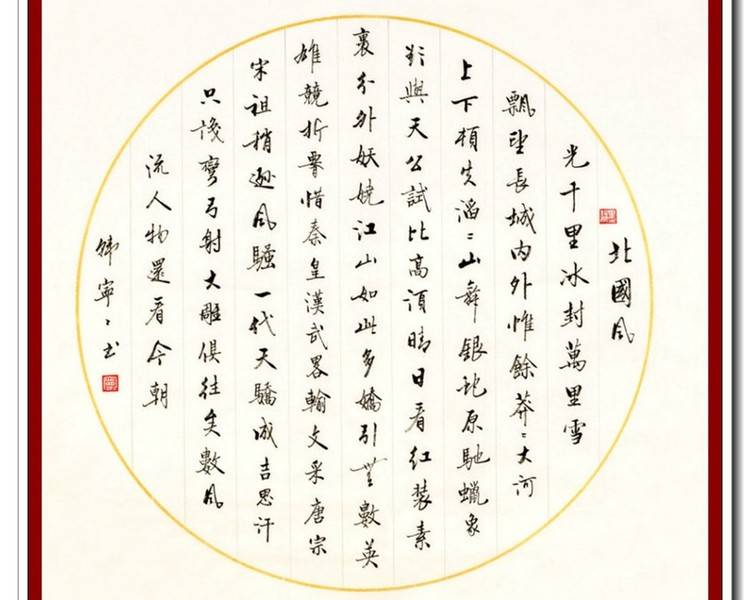 北國風
光千里冰封萬里雪
飄望長城內外惟餘莽〻大河
上下頓失滔〻山舞銀蛇原馳蠟象
欲與天公試比高須晴日看紅裝素
裹分外妖嬈江山如此多嬌引無數英
雄競折腰惜秦皇漢武畧輸文采唐宗
宋祖稍遜風騷一代天驕成吉思汗
只識彎弓射大雕俱往矣數風
流人物還看今朝
韓寧〻書